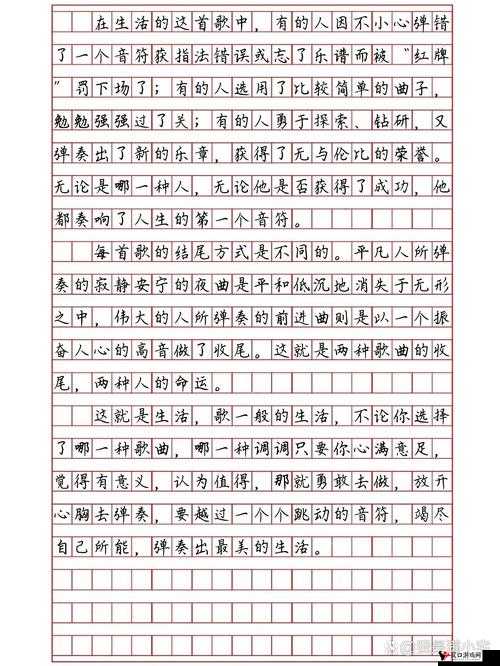 在生活的这首歌中，有的人因不小心弹错
了一个音符获指法错误或忘了乐谱而被“红牌
”罚下场了；有的人选用了比较简单的曲子，
勉勉强强过了关；有的人勇于探索、钻研，又
弹奏出了新的乐章，获得了无与伦比的荣誉。
无论是哪一种人，无论他是否获得了成功，他
都奏响了人生的第一个音符。
每首歌的结尾方式是不同的。平凡人所弹
奏的寂静安宁的夜曲是平和低沉地消失于无形
之中，伟大的人所弹奏的前进曲则是以一个振
奋人心的高音做了收尾。这就是两种歌曲的收
尾，两种人的命运。
这就是生活，歌一般的生活，不论你选择
了哪一种歌曲，哪一种调调只要你心满意足，
觉得有意义，认为值得，那就勇敢去做，放开
心胸去弹奏，要越过一个个跳动的音符，竭尽
自己所能，弹奏出最美的生活。